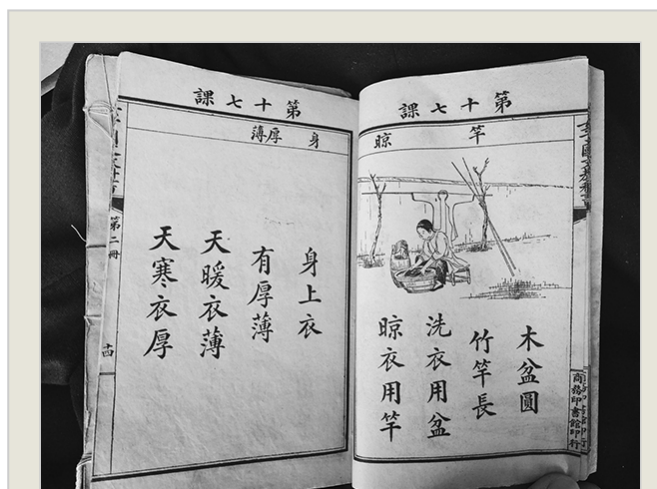 第十七課
竿 晾
木盆圓
竹竿長
洗衣用盆
晾衣用竿
商務印書館印行
第十七課
身 厚薄
身上衣
有厚薄
天暖衣薄
天寒衣厚
第二冊